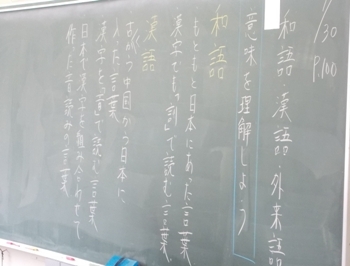 9/30
P.100
和語 漢語 外来語
意味を理解しよう
和語
もともと日本にあった言葉
漢字でも「訓」で読む言葉
漢語
古くから中国から日本に
入った言葉
漢字を「音」で読む言葉
日本で漢字を組み合わせて
作った音読みの言葉